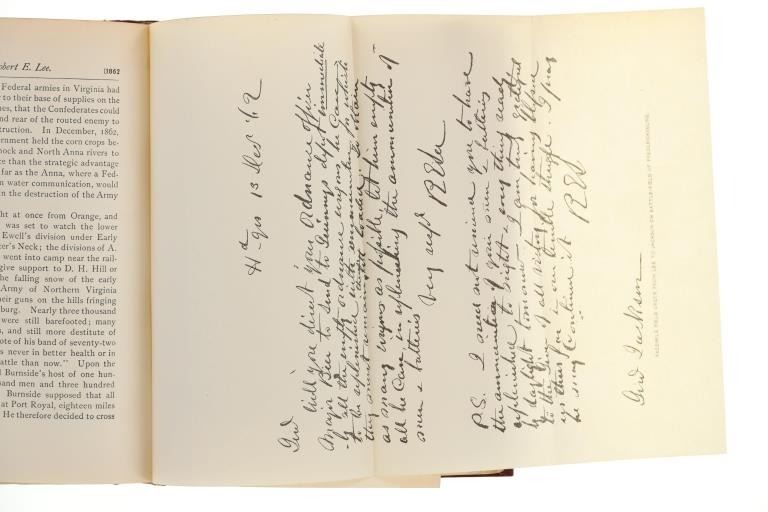 obert E. Lee.
[1862
Federal armies in Virginia had
to their base of supplies on the
es, that the Confederates could
nd rear of the routed enemy to
truction. In December, 1862,
ernment held the corn crops be-
nock and North Anna rivers to
ce than the strategic advantage
far as the Anna, where a Fed-
n water communication, would
n the destruction of the Army
ht at once from Orange, and
was set to watch the lower
Ewell's division under Early
er's Neck; the divisions of A.
went into camp near the rail-
give support to D. H. Hill or
he falling snow of the early
Army of Northern Virginia
heir guns on the hills fringing
burg. Nearly three thousand
were still barefooted; many
s, and still more destitute of
ote of his band of seventy-two
s never in better health or in
attle than now." Upon the
d Burnside's host of one hun-
sand men and three hundred
Burnside supposed that all
at Port Royal, eighteen miles
He therefore decided to cross
Hd-Qrs 13 Dec '62
Genl
Will you direct your Ordnance officer
Major Bier to send to Guineys depot immediate
ly all the empty ordnance wagons he can
to be replenished with ammunition for which
as many wagons as possible. Let him empty
all he can, in replenishing the ammunition of
men & batteries
Very respy
R E Lee
P.S. I need not remind you to have
the ammunition of your men & batteries
replenished to night & every thing ready
by daylight tomorrow. I am truly grateful
to the Giver of all victory for having blessed
us thus far in our terrible struggle. I pray
he may continue it
R E L
Genl Jackson
FACSIMILE FIELD ORDER FROM LEE TO JACKSON ON BATTLE-FIELD OF FREDERICKSBURG.